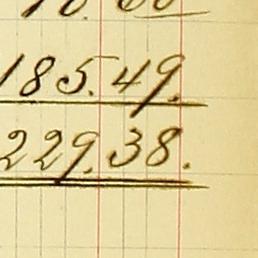 185.49.
229.38.